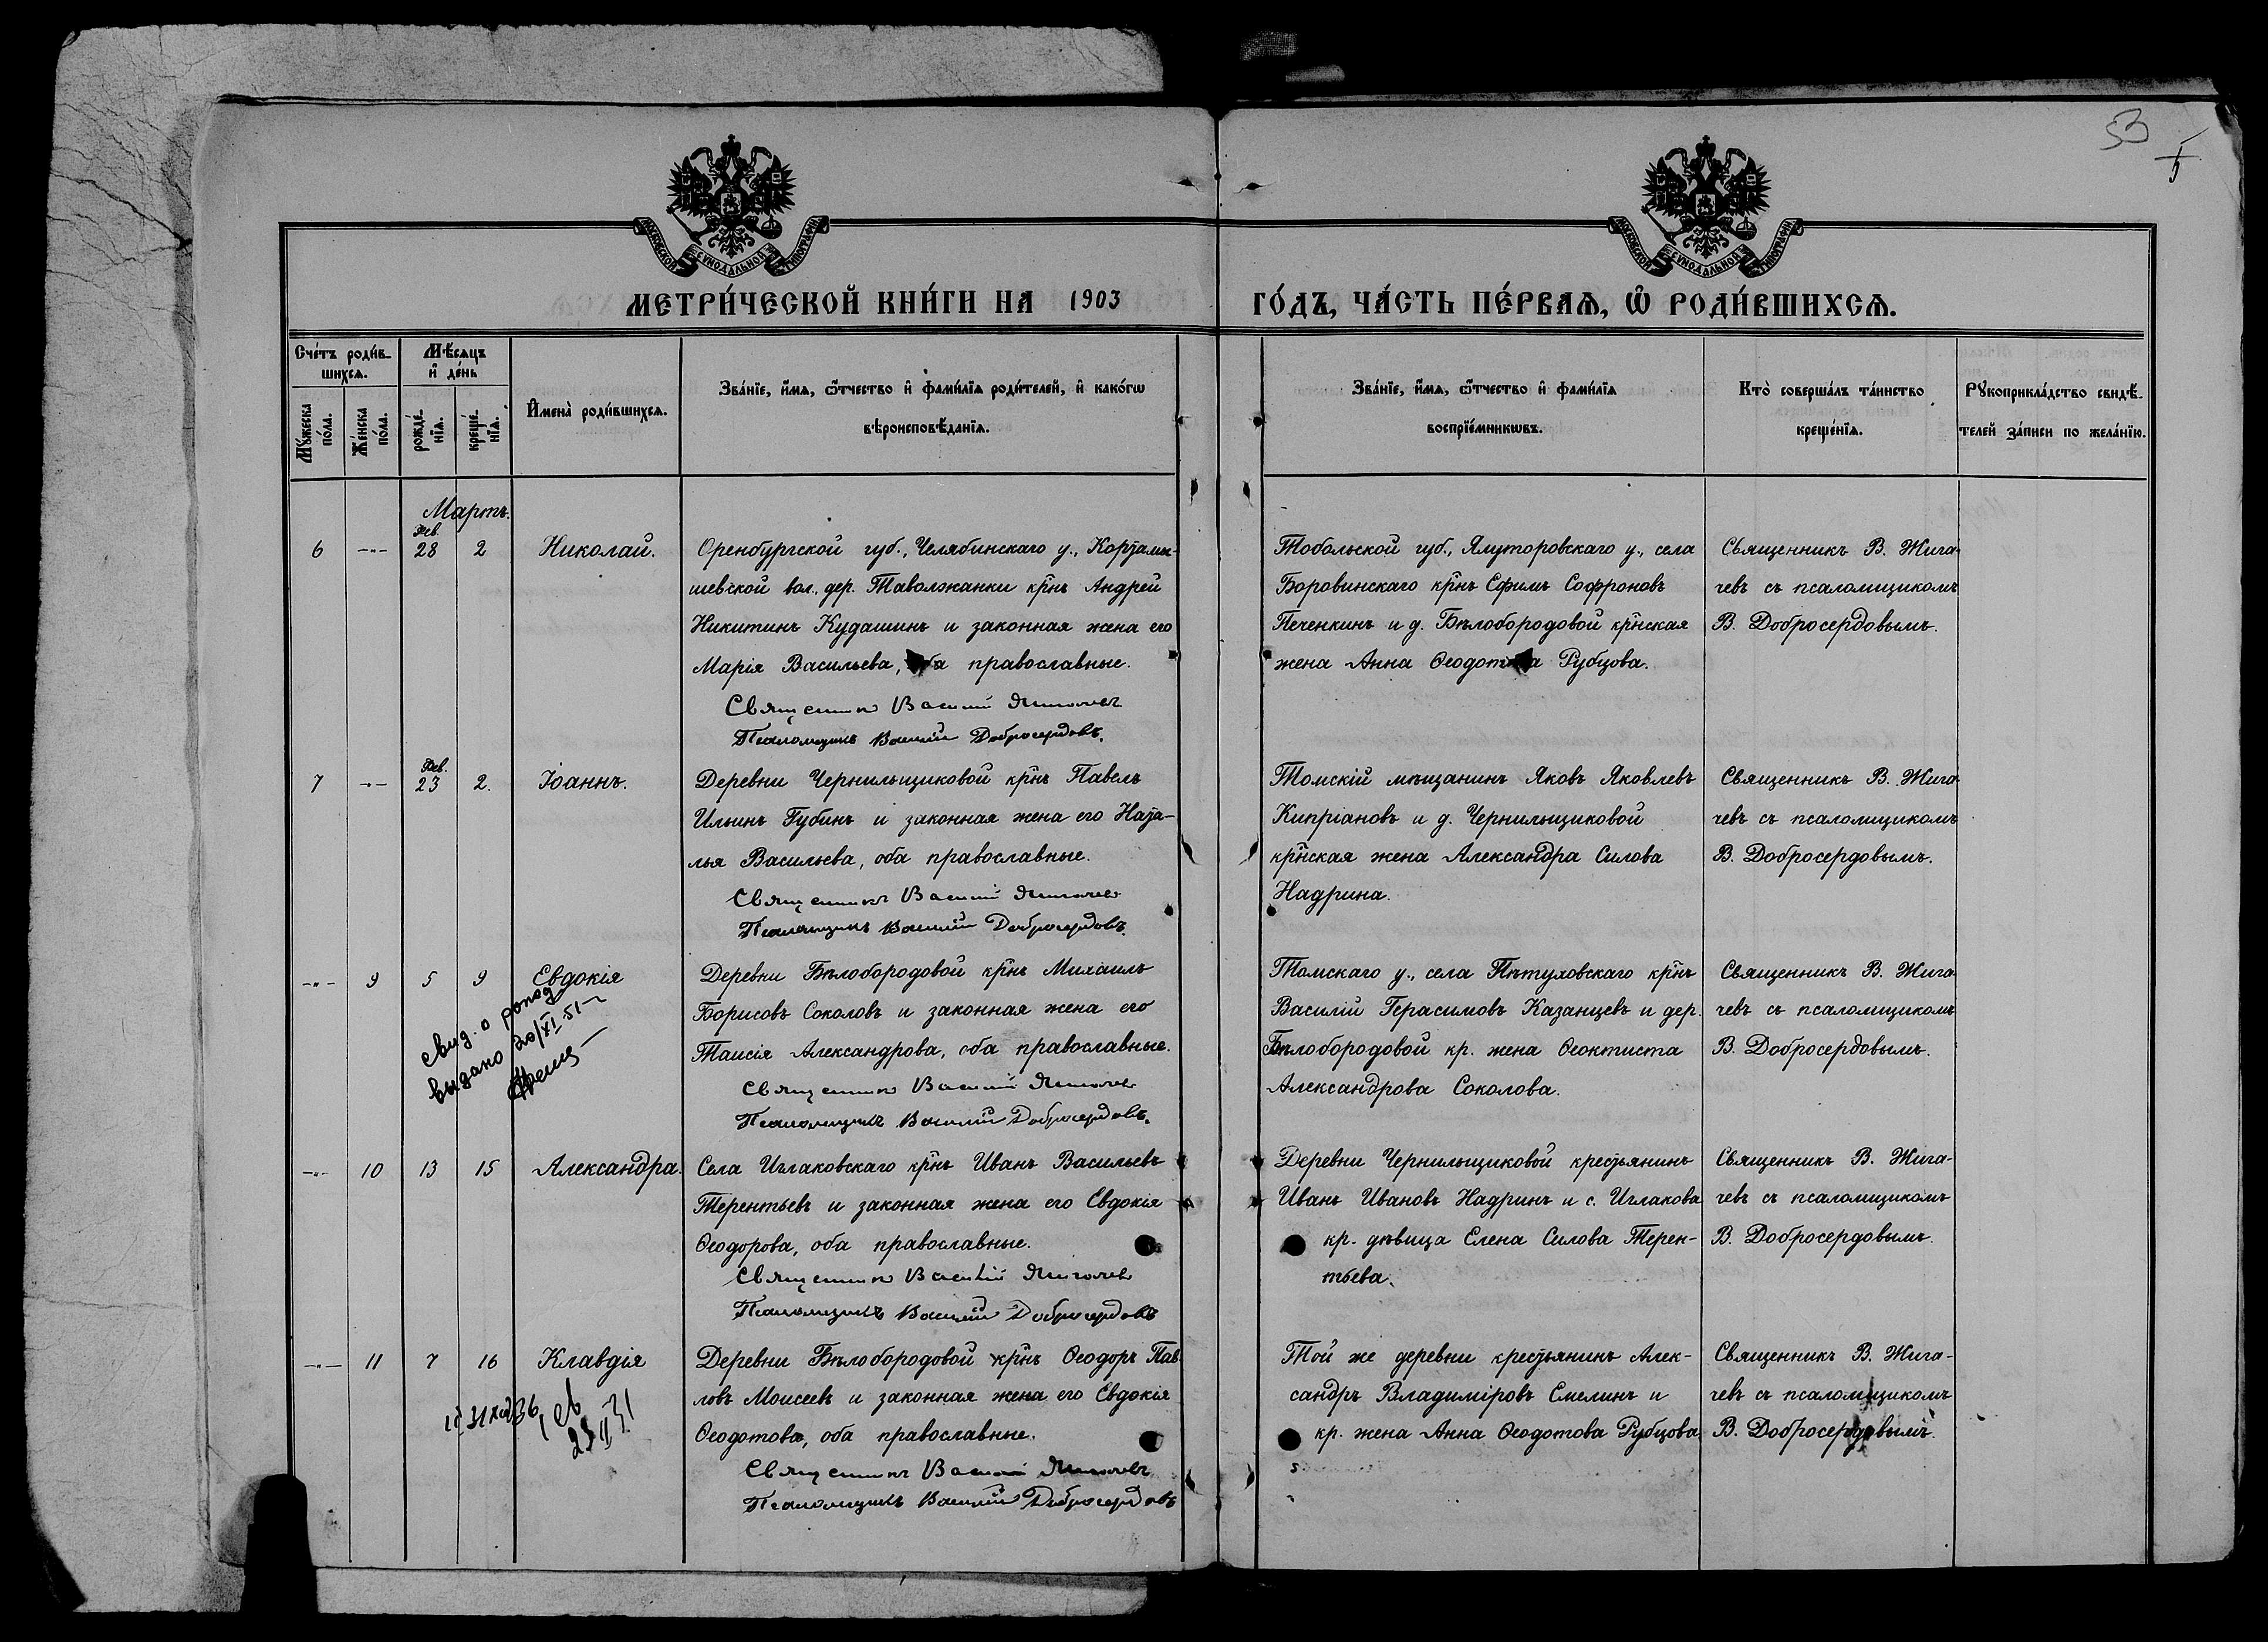 53
5
МОСКОВСКОЙ СѴНОДАЛЬНОЙ ТИПОГРАФІИ
МОСКОВСКОЙ СѴНОДАЛЬНОЙ ТИПОГРАФІИ
МЕТРИ́ЧЕСКОЙ КНИ́ГИ НА 1903 ГО́ДЪ, ЧА́СТЬ ПЕ́РВАѦ, Ѡ РОДИ́ВШИХСѦ.
Сче́тъ роди́в-
шихсѧ.
Мꙋ́жеска по́ла.
Же́нска по́ла.
Мѣ́сѧцъ
и҆ де́нь
рожде́-
нїѧ.
креще́-
нїѧ.
И҆мена̀ роди́вшихсѧ.
Зва́нїе, и҆́мѧ, ѻ҆́тчество и҆ фами́лїѧ роди́телей, и҆ како́гѡ
вѣроисповѣ́данїѧ.
Зва́нїе, и҆́мѧ, ѻ҆́тчество и҆ фами́лїѧ
воспрїе́мникѡвъ.
Кто̀ соверша́лъ та́инство
креще́нїѧ.
Рꙋкоприкла́дство свидѣ́-
телей за́писи по жела́нїю.
Мартъ.
Фев.
6 -„- 28 2 Николай.
Оренбургской губ., Челябинскаго у., Куртамы-
шевской вол., дер. Таволжанки кр̃нъ Андрей
Никитинъ Кудашинъ и законная жена его
Марія Васильева, оба православные.
Священникъ Василій Жигачевъ
Псаломщикъ Василій Добросердовъ.
Тобольской губ., Ялуторовскаго у., села
Боровинскаго кр̃нъ Ефимъ Софроновъ
Печенкинъ и д. Бѣлобородовой кр̃нская
жена Анна Ѳеодотова Рубцова.
Священникъ В. Жига-
чевъ съ псаломщикомъ
В. Добросердовымъ.
Фев.
7 -„- 23 2. Іоаннъ.
Деревни Чернильщиковой кр̃нъ Павелъ
Ильинъ Губинъ и законная жена его Ната-
лья Васильева, оба православные.
Священникъ Василій Жигачевъ
Псаломщикъ Василій Добросердовъ.
Томскій мѣщанинъ Яковъ Яковлевъ
Кипріановъ и д. Чернильщиковой
кр̃нская жена Александра Силова
Надрина.
Священникъ В. Жига-
чевъ съ псаломщикомъ
В. Добросердовымъ.
-„- 9 5 9 Евдокія
свид. о рожд
выдано 20/XI-51
Деревни Бѣлобородовой кр̃нъ Михаилъ
Борисовъ Соколовъ и законная жена его
Таисія Александрова, оба православные.
Священникъ Василій Жигачевъ
Псаломщикъ Василій Добросердовъ.
Томскаго у., села Пѣтуховскаго кр̃нъ
Василій Герасимовъ Казанцевъ и дер.
Бѣлобородовой кр. жена Ѳеоктиста
Александрова Соколова.
Священникъ В. Жига-
чевъ съ псаломщикомъ
В. Добросердовымъ.
-„- 10 13 15 Александра.
Села Иглаковскаго кр̃нъ Иванъ Васильевъ
Терентьевъ и законная жена его Евдокія
Ѳеодорова, оба православные.
Священникъ Василій Жигачевъ
Псаломщикъ Василій Добросердовъ
Деревни Чернильщиковой крестьянинъ
Иванъ Ивановъ Надринъ и с. Иглакова
кр. дѣвица Елена Силова Терен-
тьева.
Священникъ В. Жига-
чевъ съ псаломщикомъ
В. Добросердовымъ.
-„- 11 7 16 Клавдія
Деревни Бѣлобородовой кр̃нъ Ѳеодоръ Пав
ловъ Моисеевъ и законная жена его Евдокія
Ѳеодотова, оба православные.
Священникъ Василій Жигачевъ
Псаломщикъ Василій Добросердовъ
Той же деревни крестьянинъ Алек-
сандръ Владиміровъ Смелинъ и
кр. жена Анна Ѳеодотова Рубцова
Священникъ В. Жига-
чевъ съ псаломщикомъ
В. Добросердовымъ.